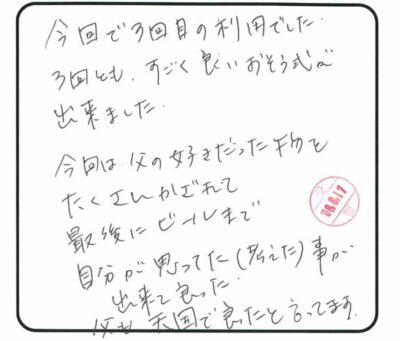 今回で3回目の利用でした.
3回とも、すごく良いおそう式が
出来ました.
今回は、父の好きだった物を
たくさんかざれて
最後にビールまで
自分が思ってた(考えた)事が
出来て良った.
父も天国で良ったと言ってます.
08.8.17